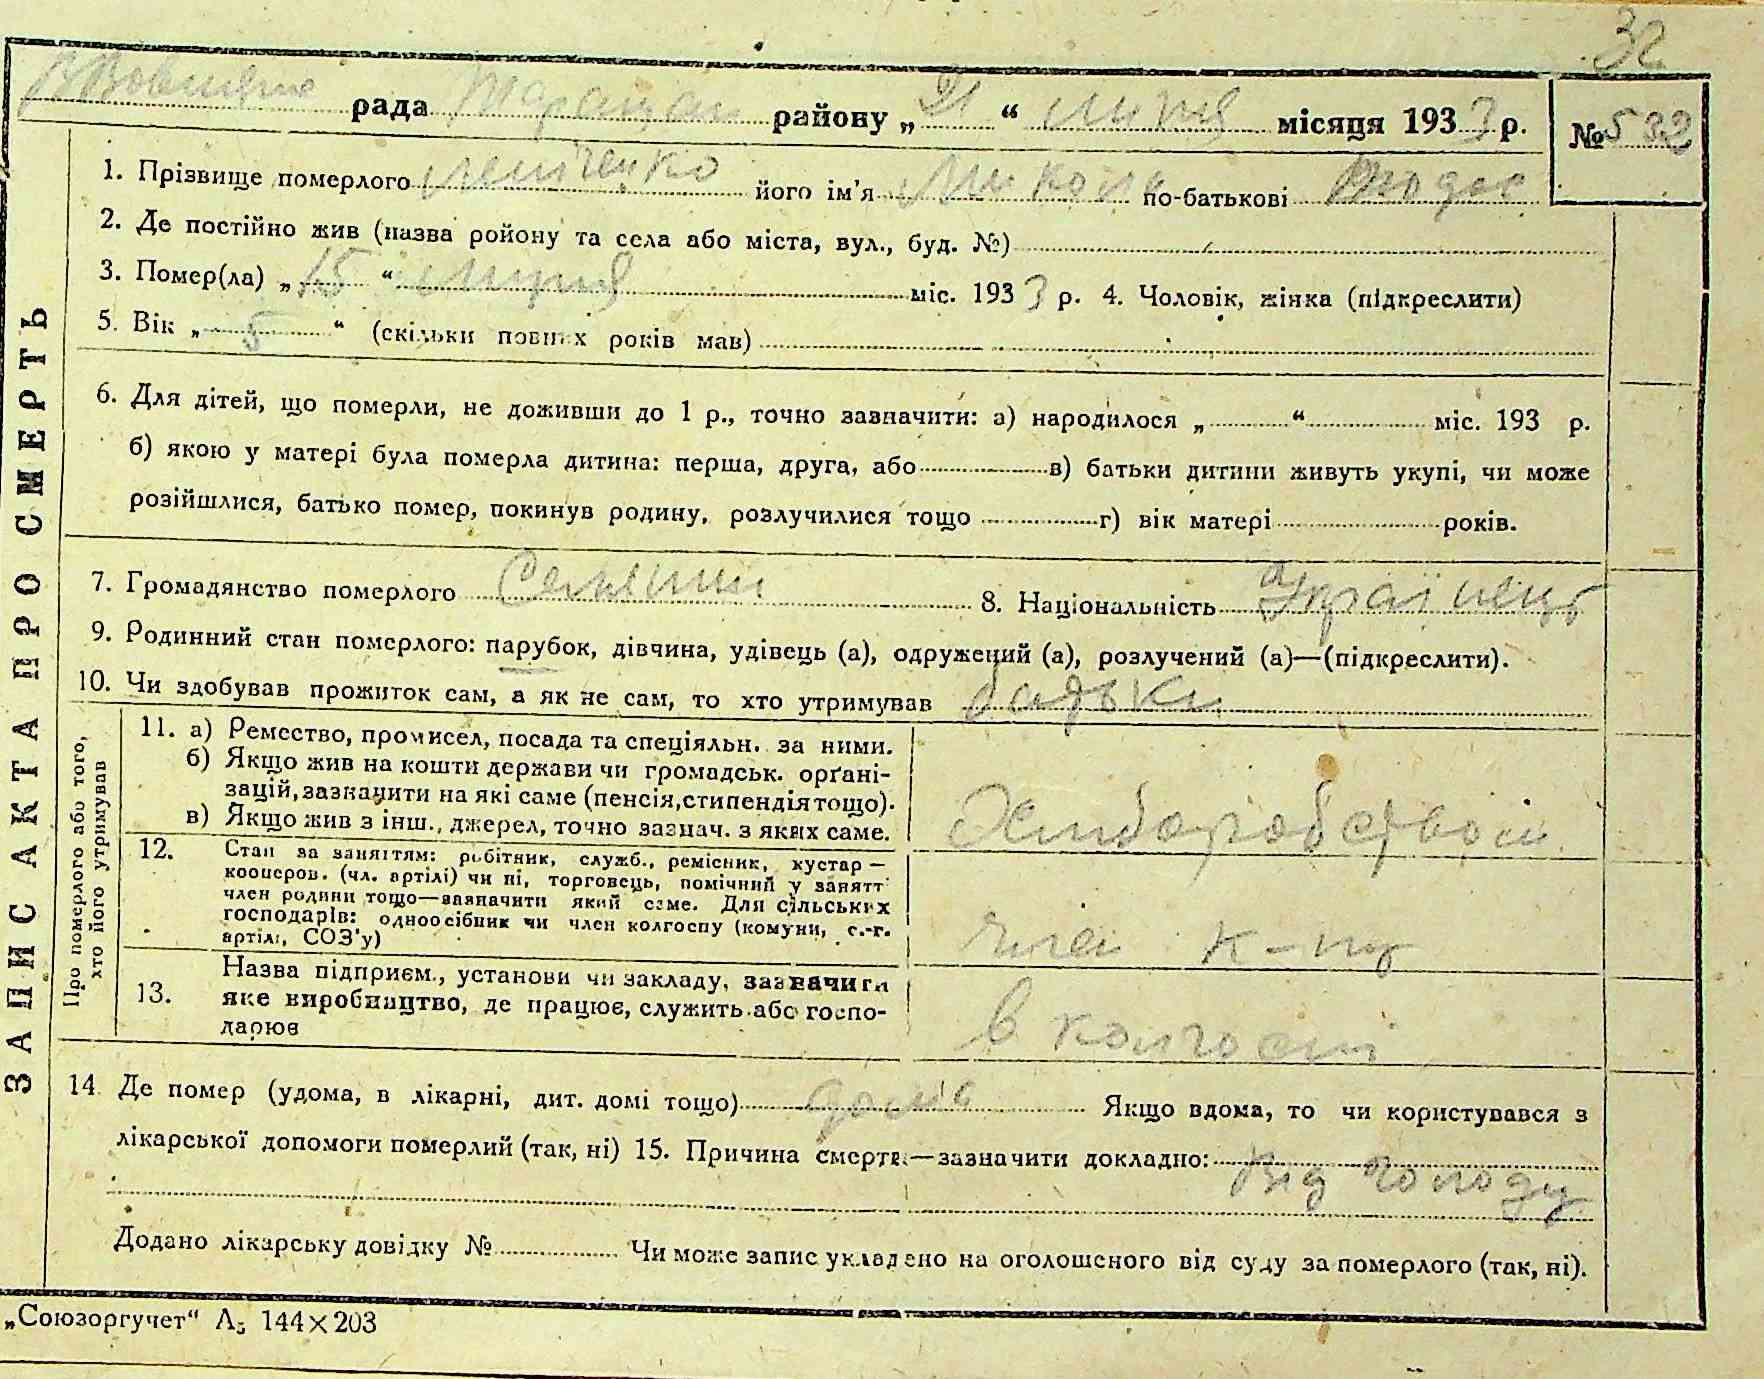 32
рада Таращан району „21“ липня місяця 1933 р. № 532
1. Прізвище померлого його ім'я Микола по-батькові
2. Де постійно жив (назва ройону та села або міста, вул., буд. №)
3. Помер(ла) „15“ липня міс. 1933 р. 4. Чоловік, жінка (підкреслити)
5. Вік „5“ (скільки повних років мав)
6. Для дітей, що померли, не доживши до 1 р., точно зазначити: а) народилося „ “ міс. 193 р.
б) якою у матері була померла дитина: перша, друга, або в) батьки дитини живуть укупі, чи може
розійшлися, батько помер, покинув родину, розлучилися тощо г) вік матері років.
7. Громадянство померлого Селянин 8. Національність Українець
9. Родинний стан померлого: парубок, дівчина, удівець (а), одружений (а), розлучений (а)—(підкреслити).
10. Чи здобував прожиток сам, а як не сам, то хто утримував батьки
ЗАПИС АКТА ПРО СМЕРТЬ
Про померлого або того,
хто його утримував
11. а) Ремество, промисел, посада та спеціяльн. за ними.
б) Якщо жив на кошти держави чи громадськ. орґані-
зацій, зазначити на які саме (пенсія, стипендія тощо).
в) Якщо жив з інш., джерел, точно зазнач. з яких саме.
Хліборобством
12. Стан за заняттям: робітник, служб., ремісник, кустар —
кооперов. (чл. артілі) чи ні, торговець, помічний у занятт
член родини тощо—зазначити який саме. Для сільських
господарів: одноосібник чи член колгоспу (комуни, с.-г.
артілі, СОЗ'у)
член к-пу
13. Назва підприєм., установи чи закладу, зазначити
яке виробництво, де працює, служить або госпо-
дарює
в колгоспі
14 Де помер (удома, в лікарні, дит. домі тощо) Якщо вдома, то чи користувався з
лікарської допомоги померлий (так, ні) 15. Причина смерти—зазначити докладно:
Від голоду
Додано лікарську довідку № Чи може запис укладено на оголошеного від суду за померлого (так, ні).
„Союзоргучет“ А5 144×203